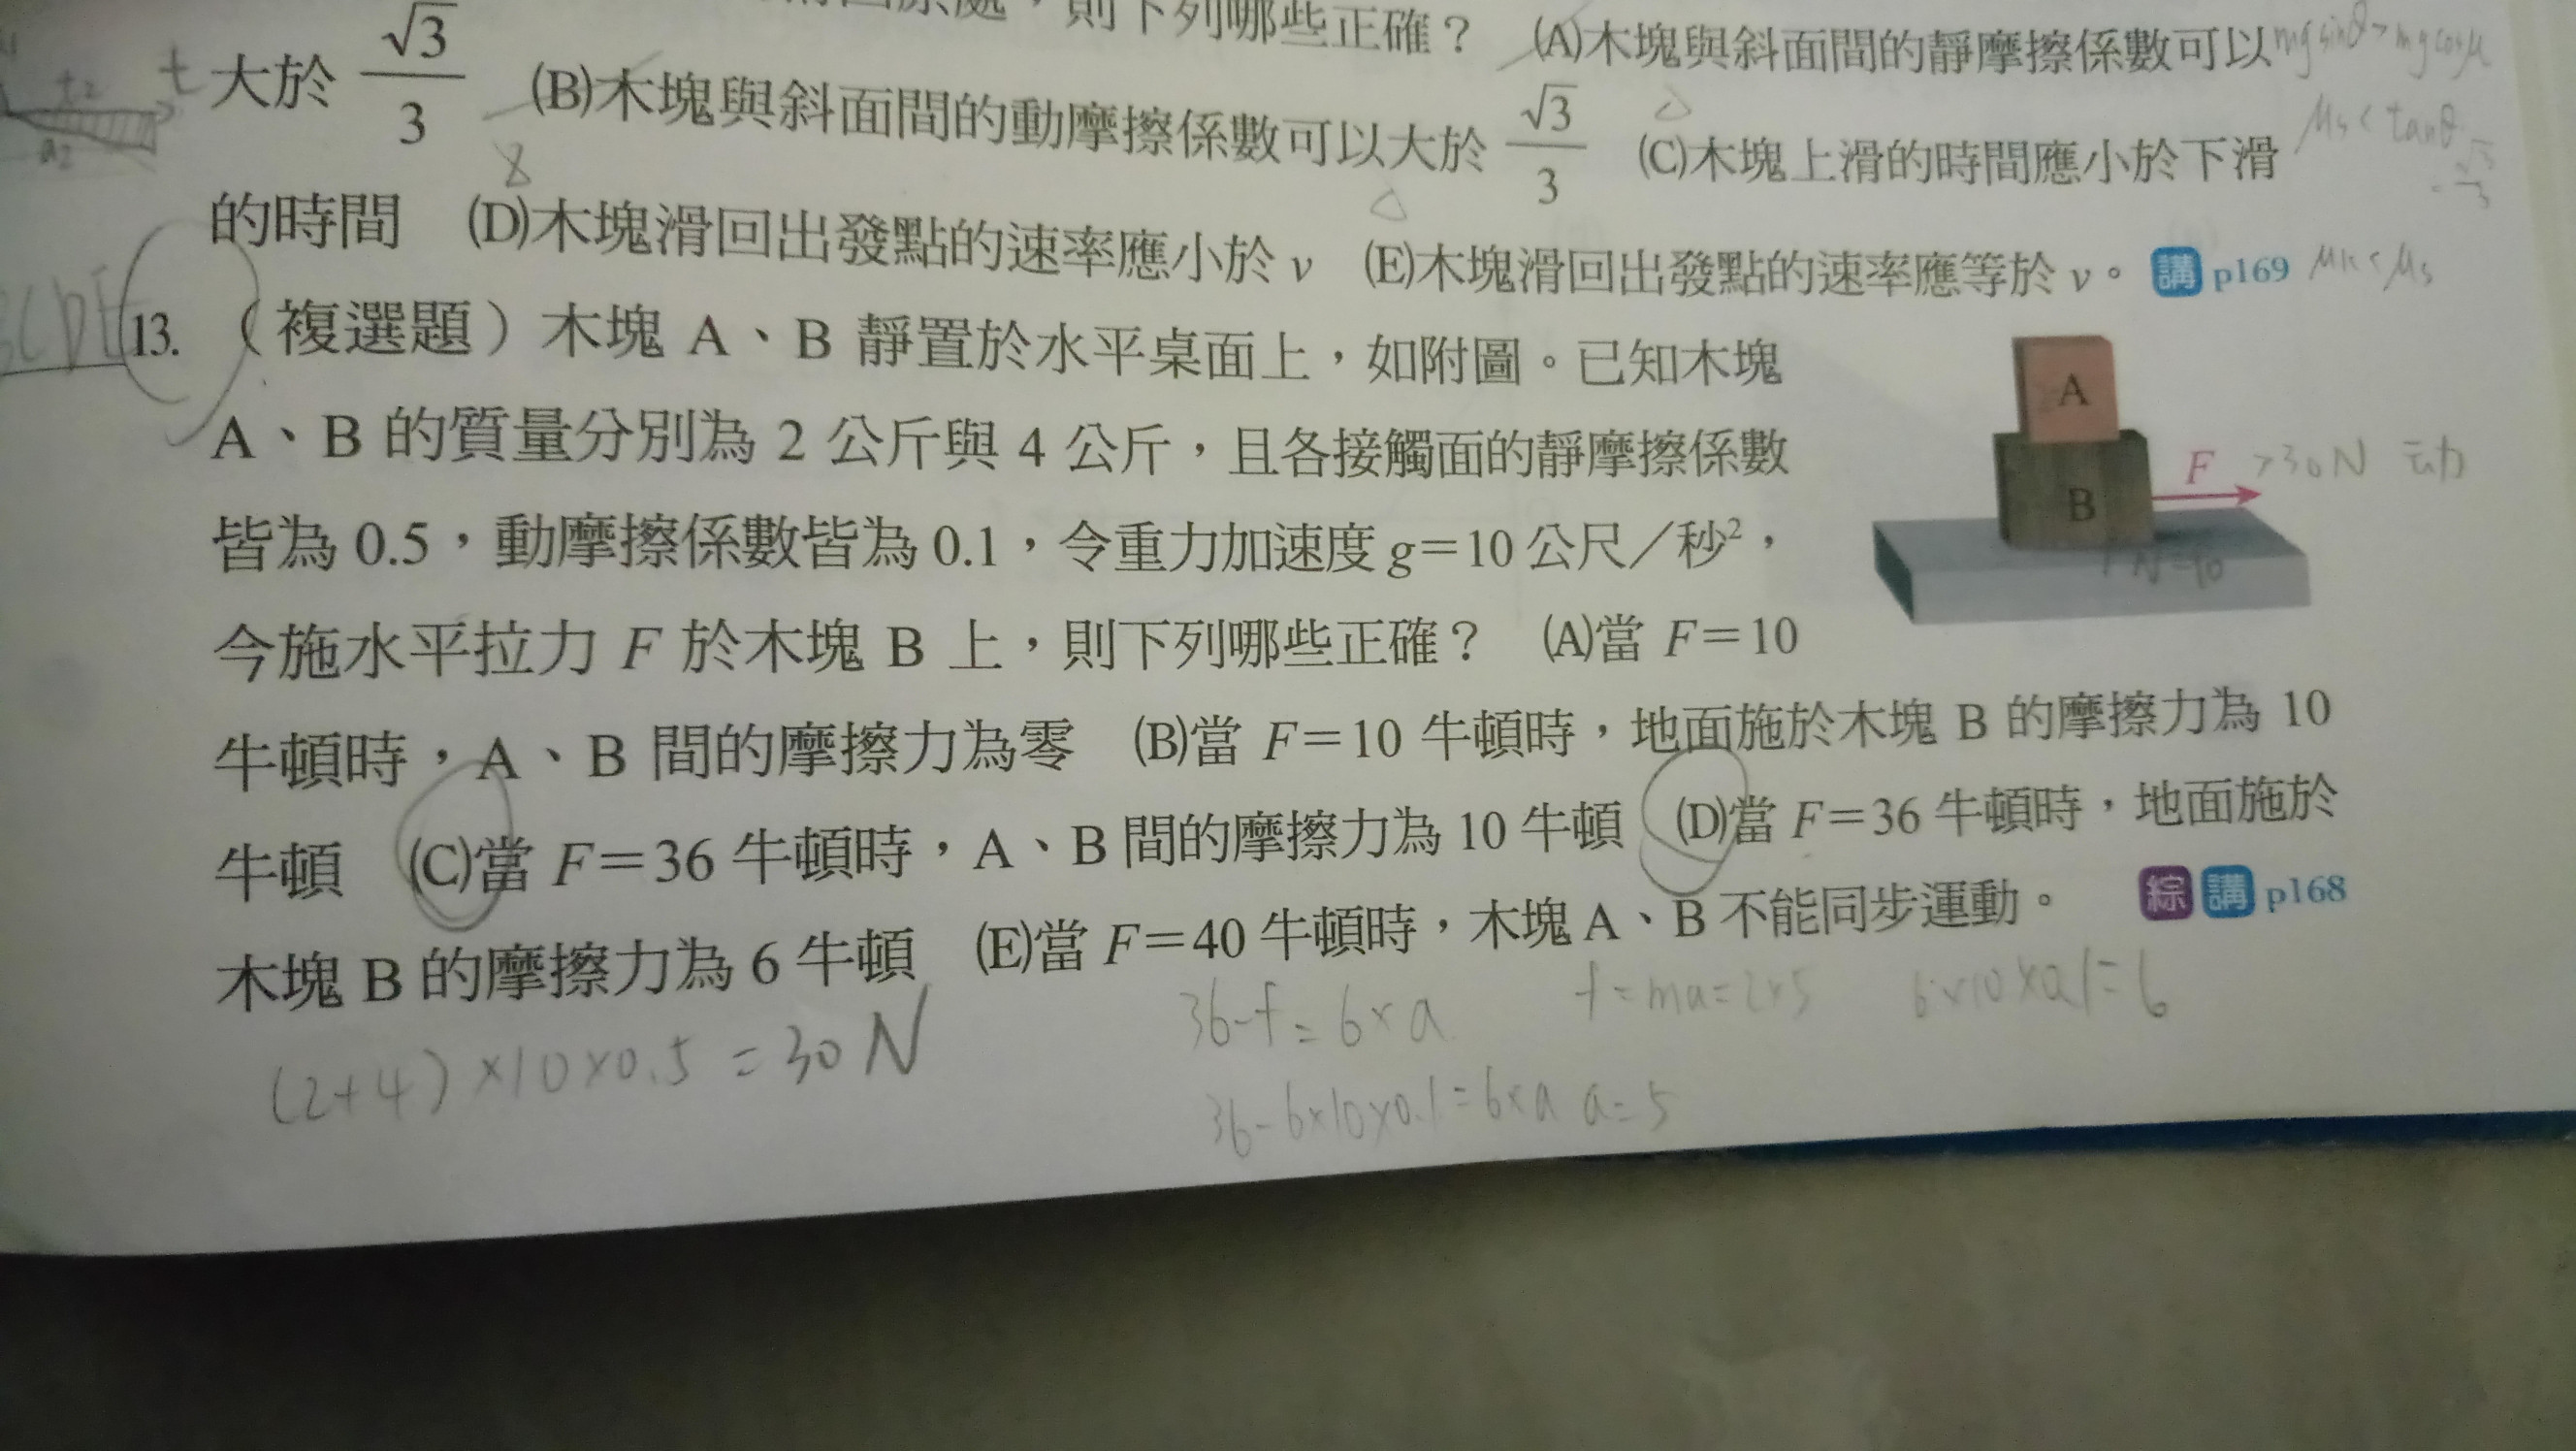 則下列哪些正確？ (A)木塊與斜面間的靜摩擦係數可以 mg sinθ > mg cosμ
大於 √3/3 (B)木塊與斜面間的動摩擦係數可以大於 √3/3 (C)木塊上滑的時間應小於下滑 μs < tanθ
t2 t
a2
的時間 (D)木塊滑回出發點的速率應小於 v (E)木塊滑回出發點的速率應等於 v。 講 p169 μk < μs
13. （複選題）木塊 A、B 靜置於水平桌面上，如附圖。已知木塊
A、B 的質量分別為 2 公斤與 4 公斤，且各接觸面的靜摩擦係數
皆為 0.5，動摩擦係數皆為 0.1，令重力加速度 g＝10 公尺／秒²，
今施水平拉力 F 於木塊 B 上，則下列哪些正確？ (A)當 F＝10
牛頓時，A、B 間的摩擦力為零 (B)當 F＝10 牛頓時，地面施於木塊 B 的摩擦力為 10
牛頓 (C)當 F＝36 牛頓時，A、B 間的摩擦力為 10 牛頓 (D)當 F＝36 牛頓時，地面施於
木塊 B 的摩擦力為 6 牛頓 (E)當 F＝40 牛頓時，木塊 A、B 不能同步運動。 綜 講 p168
A
B
F >30N 动
(2+4)×10×0.5 = 30N
36-f = 6×a
f = ma = 2×5
6×10×0.1 = 6
36-6×10×0.1 = 6×a a=5